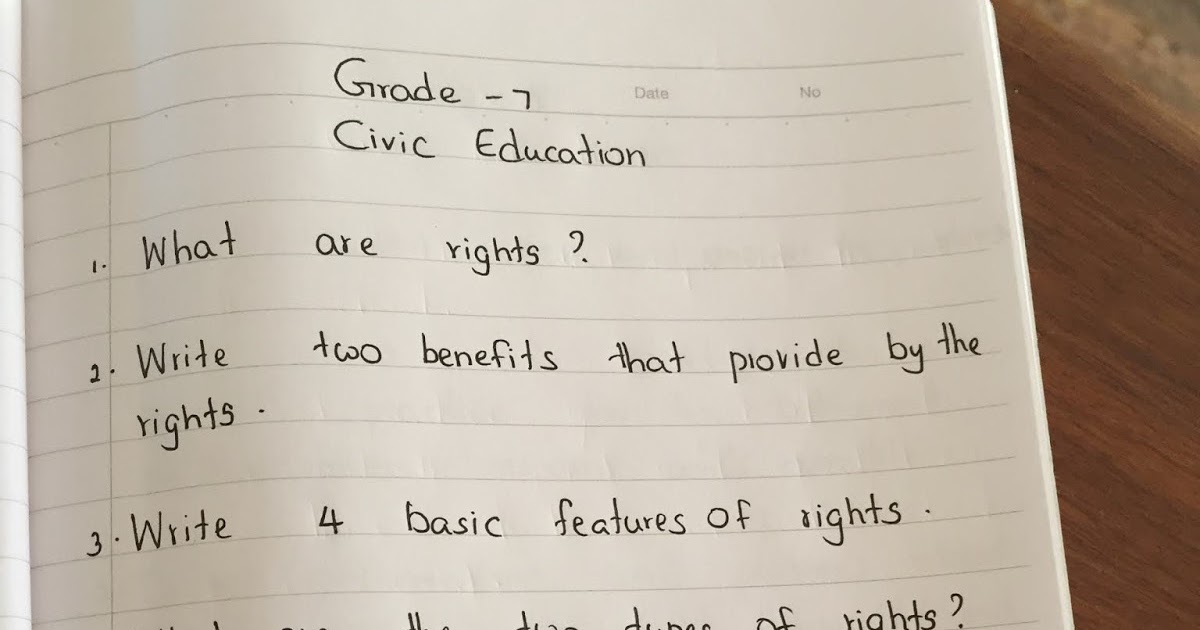 Grade - 7
Date No
Civic Education
1. What are rights?
2. Write two benefits that provide by the
rights.
3. Write 4 basic features of rights.
the two types of rights?